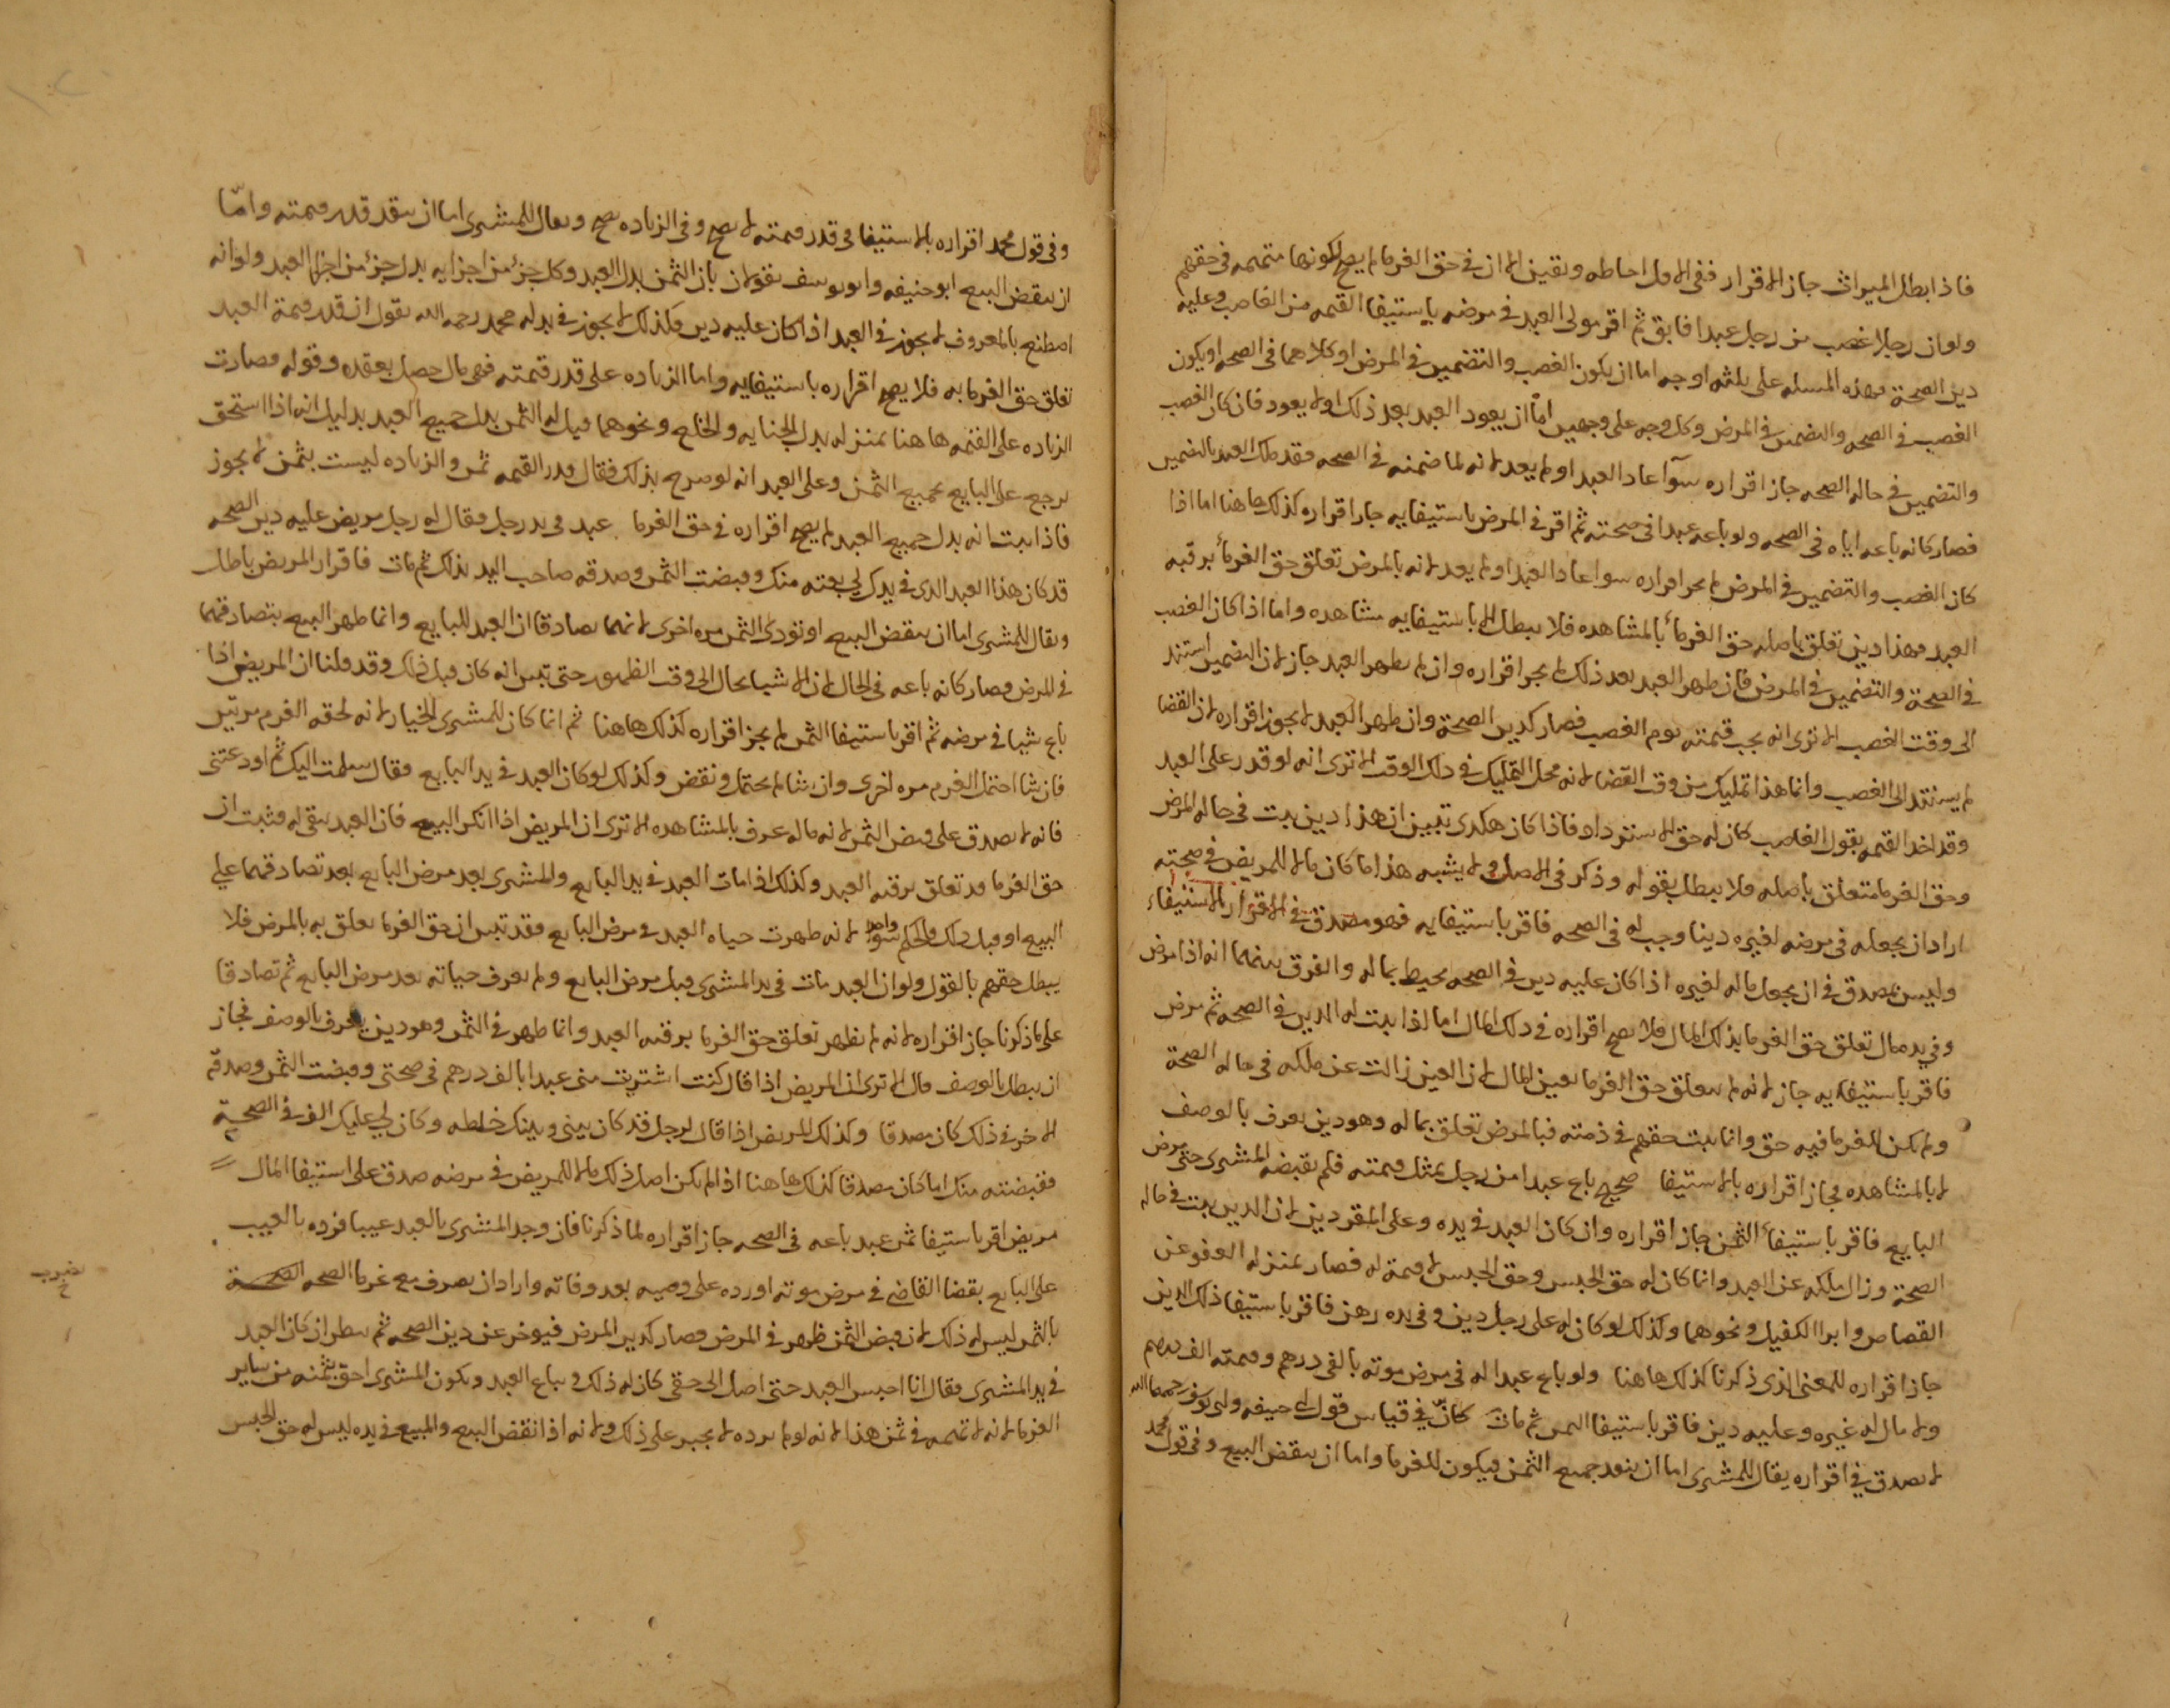 فاذا بطل الميراث جاز الاقرار ففى الاول احاطه ويقين الا ان فى حق الغرما لم يصح لكونها متهمه فى حقهم
ولو ان رجلا غصب من رجل عبدا فابق ثم اقر مولى العبد فى مرضه باستيفا القيمه من الغاصب وعليه
دين الصحة فهذه المسله على ثلثه اوجه اما ان يكون الغصب والتضمين فى المرض او كلاهما فى الصحه او يكون
الغصب فى الصحه والتضمين فى المرض وكل وجه على وجهين اما ان يعود العبد بعد ذلك او لا يعود فان كان الغصب
والتضمين فى حاله الصحه جاز اقراره سوآ عاد العبد او لم يعد لانه لما ضمنه فى الصحه فقد ملك العبد بالتضمين
فصار كانه باعه اياه فى الصحه ولو باعه عبدا فى صحته ثم اقر فى المرض باستيفايه جاز اقراره كذلك هاهنا اما اذا
كان الغصب والتضمين فى المرض لم يجز اقراره سوا عاد العبد او لم يعد لانه بالمرض تعلق حق الغرمأ برقبه
العبد فهذا دين تعلق باصله حق الغرمأ بالمشاهده فلا يبطل الا باستيفايه مشاهده واما اذا كان الغصب
فى الصحة والتضمين فى المرض فان ظهر العبد بعد ذلك لم يجز اقراره وان لم يظهر العبد جاز لان التضمين استند
الى وقت الغصب الا ترى انه يجب قيمته يوم الغصب فصار كدين الصحة وان ظهر العبد لا يجوز اقراره لان القضا
لم يستند الى الغصب وانما هذا تمليك من وقت القضا لانه محل التمليك فى ذلك الوقت الا ترى انه لو قدر على العبد
وقد اخذ القيمه بقول الغاصب كان له حق الاسترداد فاذا كان هكذى تبين ان هذا دين يثبت فى حاله المرض
وحق الغرما متعلق باصله فلا يبطل بقوله وذكر فى الاصل ولا يشبه هذا ما كان مالا للمريض فى صحته
اراد ان يجعله فى مرضه لغيره دينا وجب له فى الصحه فاقر باستيفايه فهو مصدق فى الاقرار بالاستيفاء
وليس بمصدق فى ان يجعل ماله لغيره اذا كان عليه دين فى الصحه محيط بماله والفرق بينهما انه اذا مرض
وفى يده مال تعلق حق الغرما بذلك المال فلا يصح اقراره فى ذلك المال اما اذا يثبت له الدين فى الصحه ثم مرض
فاقر باستيفايه جاز لانه لم يتعلق حق الغرما بعين المال لان العين زالت عن ملكه فى حاله الصحة
ولم يكن للغرما فيه حق وانما يثبت حقهم فى ذمته فبالمرض تعلق بماله وهو دين يعرف بالوصف
لا بالمشاهده فجاز اقراره بالاستيفا صحيح باع عبدا من رجل بمثل قيمته فلم يقبضه المشترى حتى مرض
البايع فاقر باستيفأ الثمن جاز اقراره وان كان العبد فى يده وعلى المقر دين لان الدين يثبت فى حاله
الصحة وزال ملكه عن العبد وانما كان له حق الحبس وحق الحبس لا قيمة له فصار بمنزله العفو عن
القصاص وابرا الكفيل ونحوهما وكذلك لو كان له على رجل دين وفى يده رهن فاقر باستيفا ذلك الدين
جاز اقراره للمعنى الذى ذكرنا كذلك هاهنا ولو باع عبدا له فى مرض موته بالفى درهم وقيمته الف درهم
ولا مال له غيره وعليه دين فاقر باستيفا الثمن ثم مات كان فى قياس قول ابى حنيفه وابى يوسف رحمهما الله
لا يصدق فى اقراره يقال للمشترى اما ان ينقد جميع الثمن فيكون للغرما واما ان ينقض البيع وفى قول محمد
وفى قول محمد اقراره بالاستيفا فى قدر قيمته لا يصح وفى الزياده يصح ويقال للمشترى اما ان ينقد قدر قيمته وامّا
ان ينقض البيع ابو حنيفه وابو يوسف يقولان بان الثمن بدل العبد وكل جزء من اجزايه بدل جزء من اجزا العبد ولو انه
اصطنع بالمعروف لا يجوز فى العبد اذا كان عليه دين فكذلك لا يجوز فى بدله محمد رحمه الله يقول ان قدر قيمة العبد
تعلق حق الغرما به فلا يصح اقراره باستيفايه واما الزياده على قدر قيمته فهى مال حصل بعقده وقوله فصارت
الزياده على القيمه هاهنا بمنزله بدل الجنايه والخلع ونحوهما قيل له الثمن بدل جميع العبد بدليل انه اذا استحق
يرجع على البايع بجميع الثمن وعلى العبد انه لو صرح بذلك فقال قدر القيمه ثمن والزياده ليست بثمن لا يجوز
فاذا يثبت انه بدل جميع العبد لم يصح اقراره فى حق الغرما عبد فى يد رجل فقال له رجل مريض عليه دين الصحه
قد كان هذا العبد الذى فى يدك لى بعته منك وقبضت الثمن وصدقه صاحب اليد بذلك ثم مات فاقرار المريض باطل
ويقال للمشترى اما ان ينقض البيع او تودى الثمن مره اخرى لانهما تصادقا ان العبد للبايع وانما ظهر البيع بتصادقهما
فى المرض فصار كانه باعه فى الحال لان الاشيا يحال الى وقت الظهور حتى تبين انه كان قبل ذلك وقد قلنا ان المريض اذا
باع شيا فى مرضه ثم اقر باستيفا الثمن لم يجز اقراره كذلك هاهنا ثم انما كان للمشترى الخيار لانه لحقه الغرم مرتين
فان شا احتمل الغرم مره اخرى وان شا لم يحتمل ونقض وكذلك لو كان العبد فى يد البايع فقال سلمت اليك ثم اودعتنى
فانه لا يصدق على قبض الثمن لانه ماله عرف بالمشاهده الا ترى ان المريض اذا انكر البيع فان العبد يبقى له فثبت ان
حق الغرما قد تعلق برقبه العبد وكذلك اذا مات العبد فى يد البايع والمشترى بعد مرض البايع بعد تصادقهما على
البيع او قبل ذلك والحكم سوا لانه ظهرت حياه العبد فى مرض البايع فقد تبين ان حق الغرما تعلق به بالمرض فلا
يبطل حقهم بالقول ولو ان العبد مات فى يد المشترى قبل مرض البايع ولم يعرف حياته بعد مرض البايع ثم تصادقا
على ما ذكرنا جاز اقراره لانه لم يظهر تعلق حق الغرما برقبه العبد وانما ظهر فى الثمن وهو دين يعرف بالوصف فجاز
ان يبطل بالوصف قال الا ترى ان المريض اذا قال كنت اشتريت منى عبدا بالف درهم فى صحتى وقبضت الثمن وصدقه
الاخر فى ذلك كان مصدقا وكذلك المريض اذا قال لرجل قد كان بينى وبينك خلطه وكان لى عليك الف فى الصحة
فقبضته منك اما كان مصدقا كذلك هاهنا اذا لم يكن اصل ذلك مالا للمريض فى مرضه صدق على استيفا المال
مريض اقر باستيفا ثمن عبد باعه فى الصحه جاز اقراره لما ذكرنا فان وجد المشترى بالعبد عيبا فرده بالعيب
على البايع بقضا القاضى فى مرض موته او رده على وصيه بعد وفاته واراد ان يصرف مع غرما الصحه الصحة
بالثمن ليس له ذلك لان قبض الثمن ظهر فى المرض فصار كدين المرض فيوخر عن دين الصحه ثم ينظر ان كان العبد
فى يد المشترى فقال انا احبس العبد حتى اصل الى حقى كان له ذلك ويباع العبد ويكون المشترى احق بثمنه من ساير
الغرما لانه لا تهمه فى ثمن هذا لانه لو لم يرده لا يجبر على ذلك ولانه اذا انقض البيع والمبيع فى يده ليس له حق الحبس